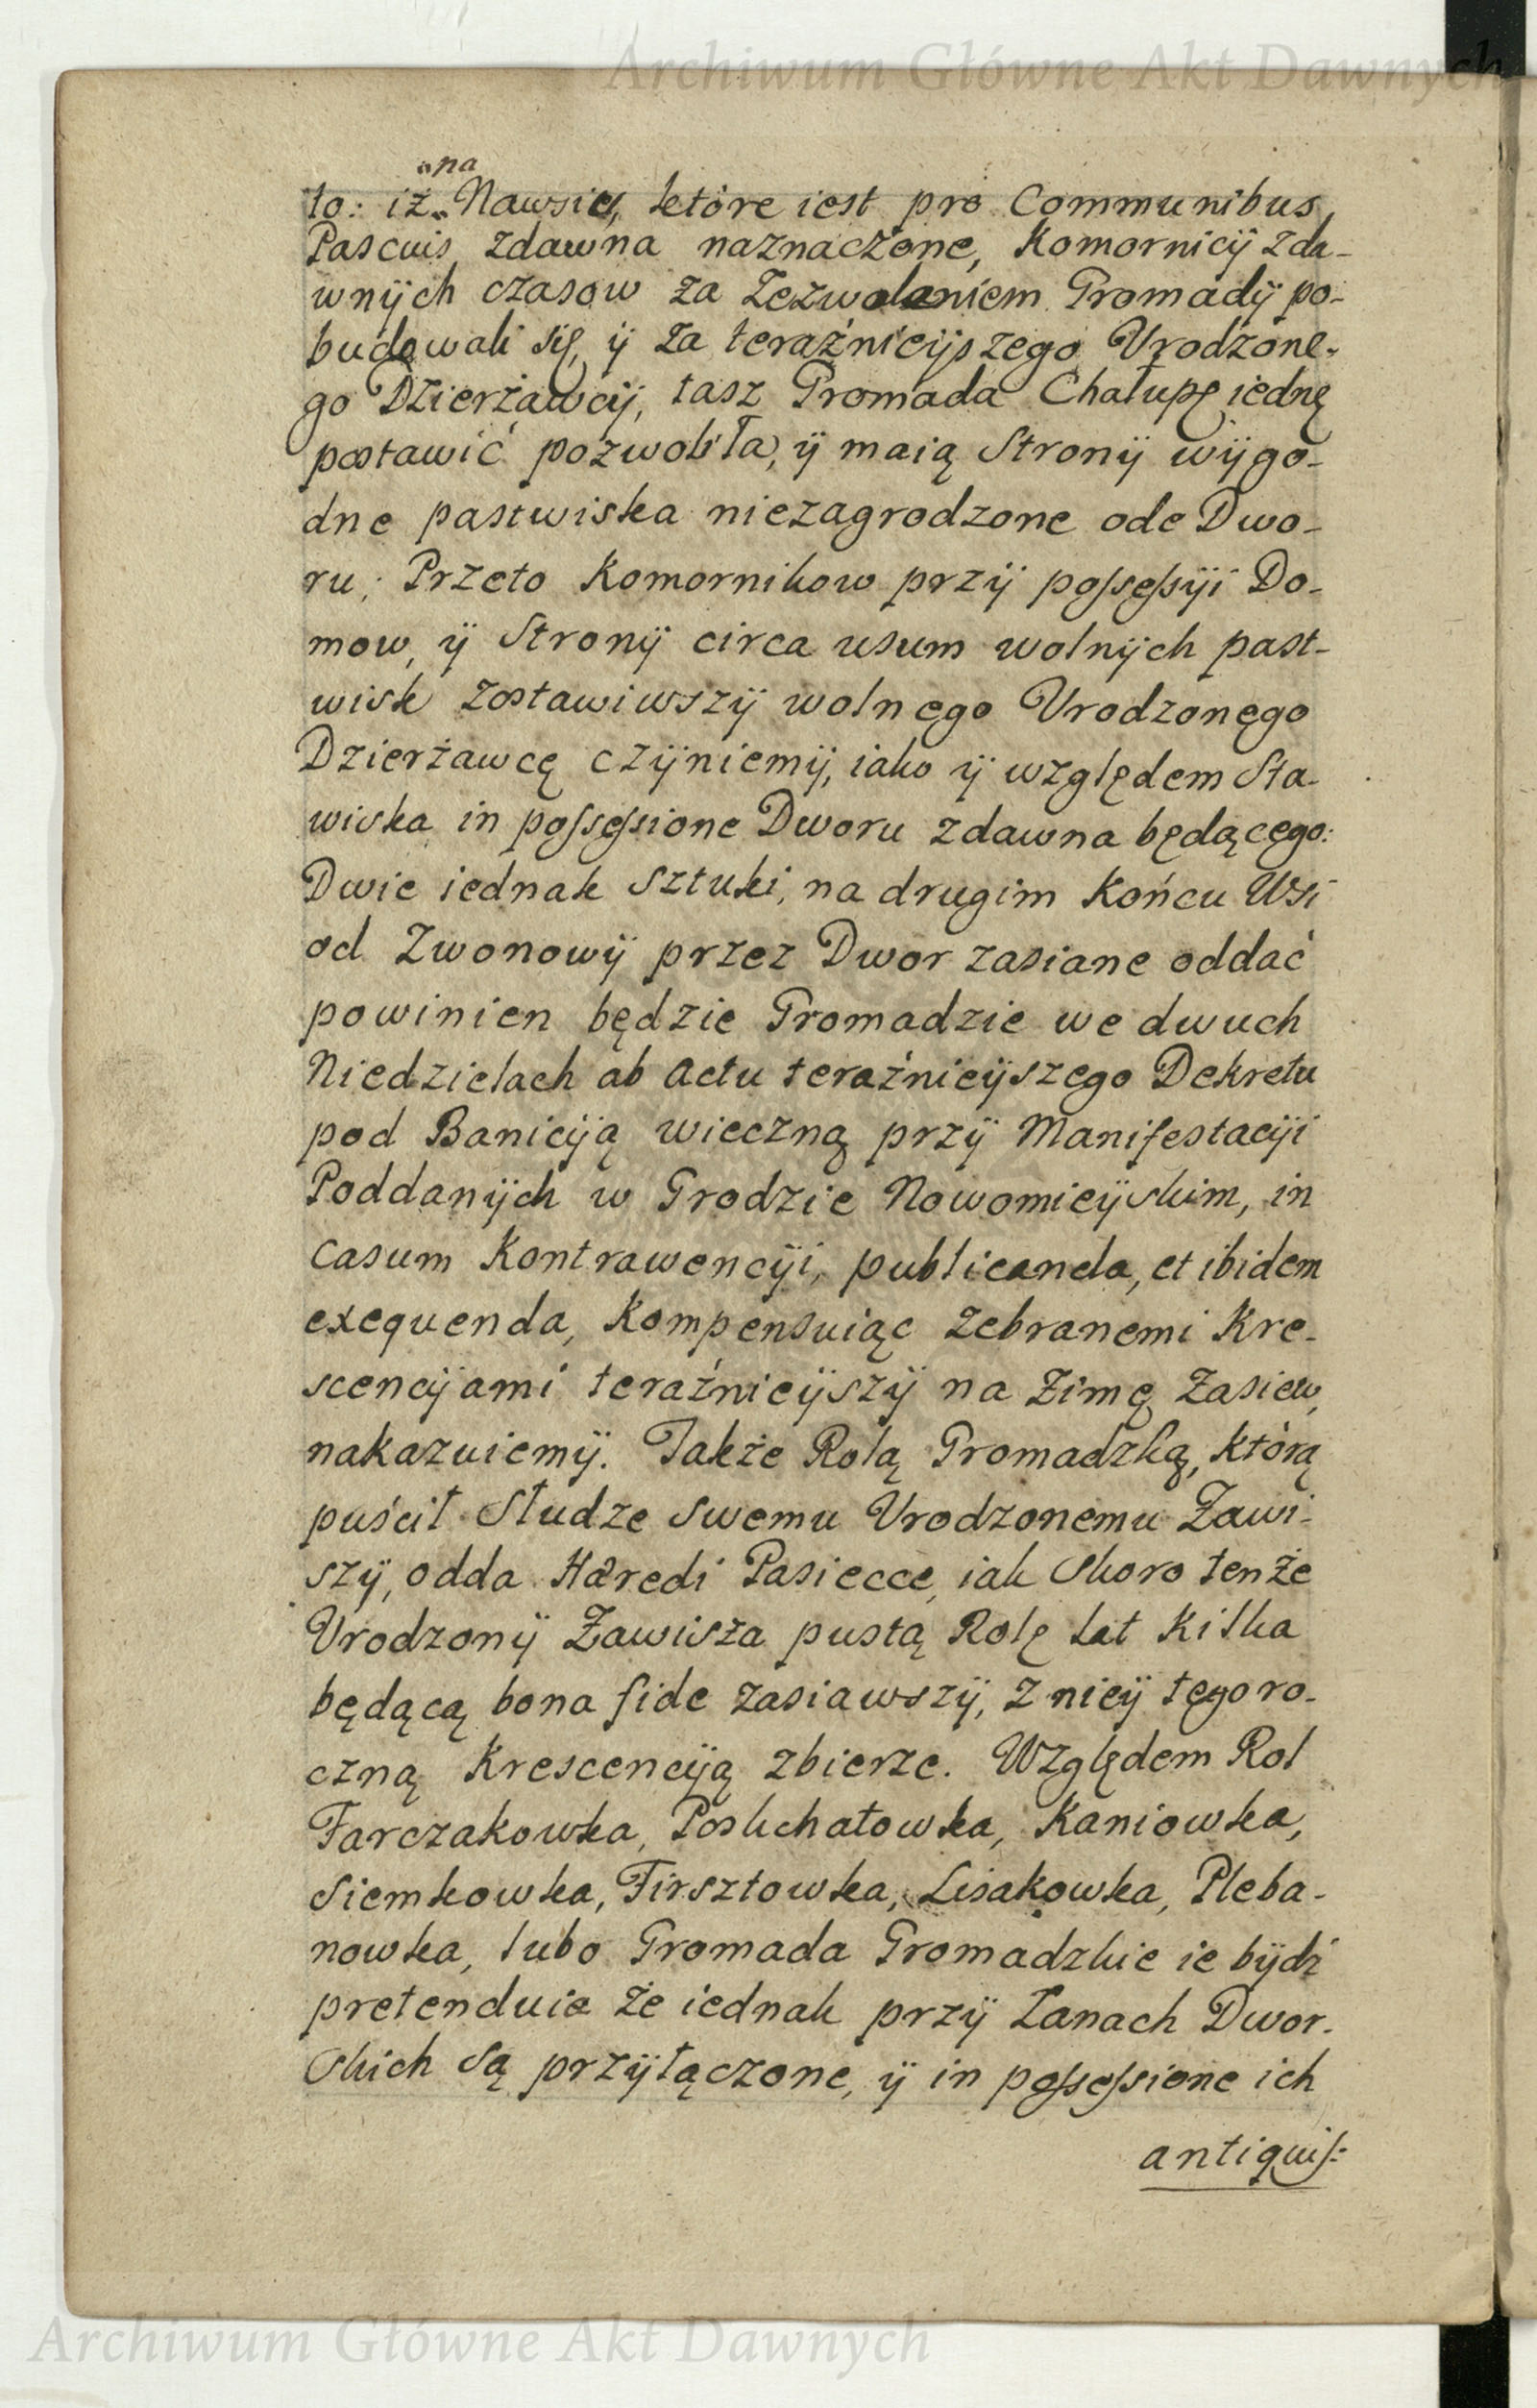 Archiwum Główne Akt Dawnych
"na
to: iż„ Nawsiu, ktore iest pro Communibus
Pascuis zdawna naznaczone, Komornicÿ zda-
wnÿch czasow za Zezwoleniem Gromadÿ po-
budowali się, ÿ za teraźnieÿszego Urodzone-
go Dzierżawcÿ, tasz Gromada Chałupę iednę
postawić pozwoliła, ÿ maią Stronÿ wÿgo-
dne pastwiska niezagrodzone ode Dwo-
ru; Przeto Komornikow przÿ possessÿi Do-
mow, ÿ Stronÿ circa usum wolnÿch past-
wisk zostawiwszÿ wolnego Urodzonęgo
Dzierżawcę czÿniemÿ, iako ÿ względem Sta-
wiska in possessione Dworu zdawna będącęgo:
Dwie iednak sztuki, na drugim Końcu Wsi
od Zwonowÿ przez Dwor zasiane oddać
powinien będzie Gromadzie we dwuch
Niedzielach ab Actu teraźnieÿszego Dekretu
pod Banicÿą wieczną przÿ Manifestacÿi
Poddanÿch w Grodzie Nowomieÿskim, in
casum Kontrawencÿi, publicanda, et ibidem
exequenda, Kompensuiąc zebranemi Kre-
scencÿami teraźnieÿszÿ na Zimę Zasiew,
nakazuiemÿ. Także Rolą Gromadzką, którą
puścił Słudze swemu Urodzonemu Zawi-
szÿ, odda Hæredi Pasiecce, iak skoro tenże
Urodzonÿ Zawisza pustą Rolę lat Kilka
będącą bona fide zasiawszÿ, z nieÿ tęgoro-
czną Krescencÿą zbierze. Względem Rol
Farczakowka, Poskchatowka, Kaniowka,
Siemkowka, Firsztowka, Lisakowka, Pleba-
nowka, lubo Gromada Gromadzkie ie bÿdź
pretenduie że iednak przÿ Łanach Dwor-
skich są przÿłączone, ÿ in possessione ich
antiquis:
Archiwum Główne Akt Dawnych